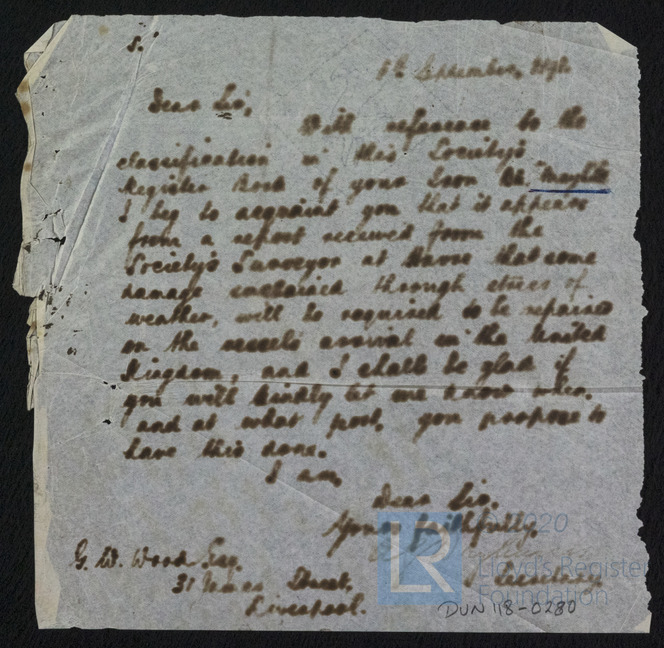 S.
September,
Dear Sir,
With reference to the
classification in this Society's
Register Book of your Iron
I beg to acquaint you that it appears
from a report received from the
Society's Surveyor at that some
damage sustained through stress of
weather, will be required to be repaired
on the vessel's arrival in the United
Kingdom, and I shall be glad if
you will kindly let me know when,
and at what port, you propose to
have this done.
I am,
Dear Sir,
Yours faithfully,
2020
Secretary
G. W. Wood Esq.
31 James Street,
Liverpool.
LR
Lloyds Register
Foundation
DUN 118-0280